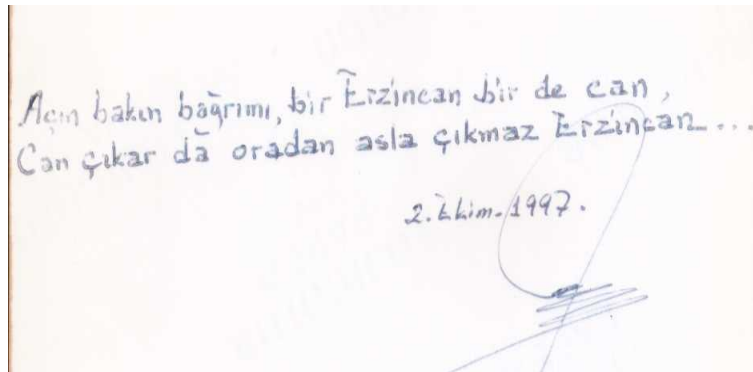 Açın bakın bağrımı, bir Erzincan bir de can,
Can çıkar da oradan asla çıkmaz Erzincan...
2. Ekim. 1997.